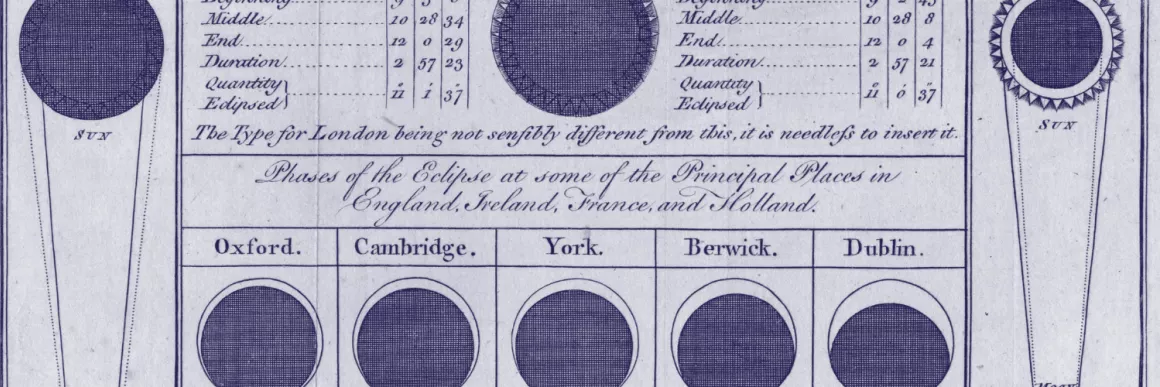 Beginning
Middle 10 28 34
End 12 0 29
Duration 2 57 23
Quantity
Eclipsed } 11 1 37
Middle 10 28 8
End 12 0 4
Duration 2 57 21
Quantity
Eclipsed } 11 0 37
SUN
SUN
The Type for London being not senſibly different from this, it is needleſs to insert it.
Phases of the Eclipse at some of the Principal Places in
England, Ireland, France, and Holland.
Oxford. Cambridge. York. Berwick. Dublin.